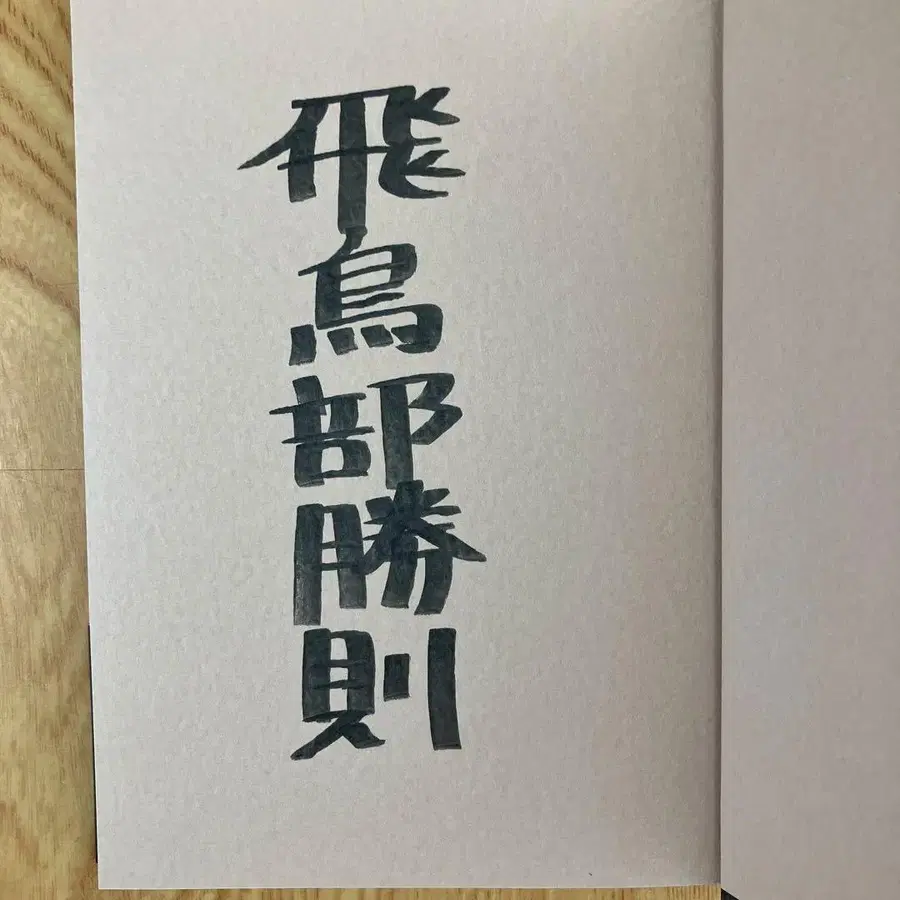 飛鳥部勝則